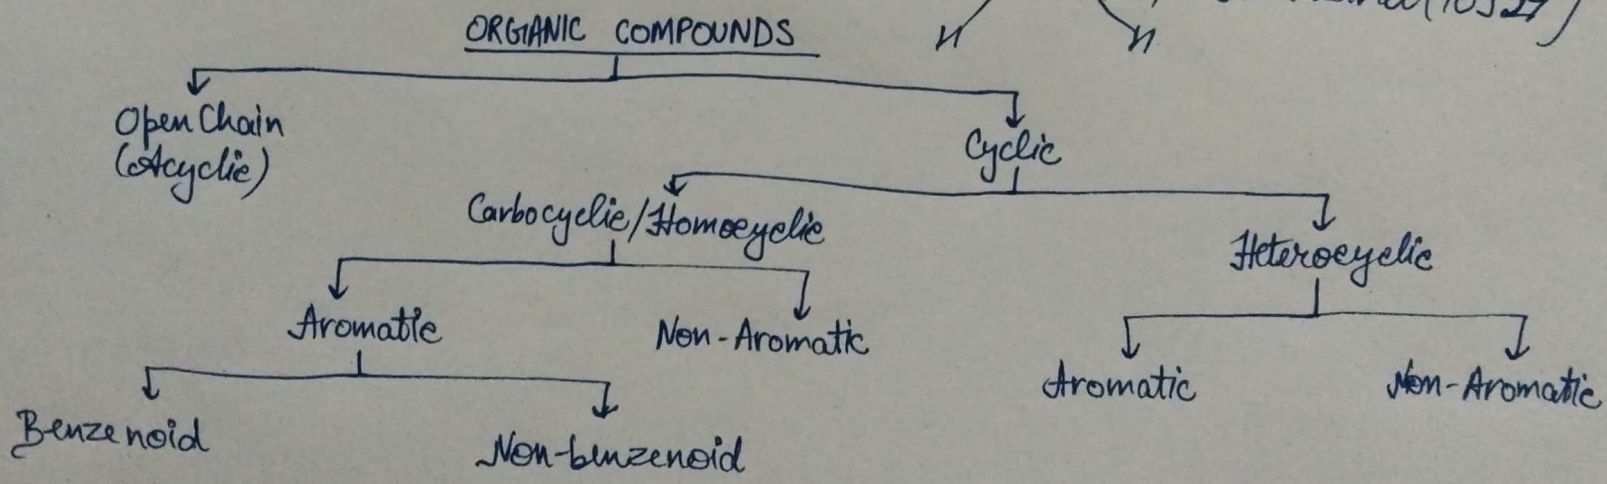 ORGANIC COMPOUNDS
Open Chain
(Acyclic)
Cyclic
Carbocyclic/Homocyclic
Heterocyclic
Aromatic
Non-Aromatic
Aromatic
Non-Aromatic
Benzenoid
Non-benzenoid